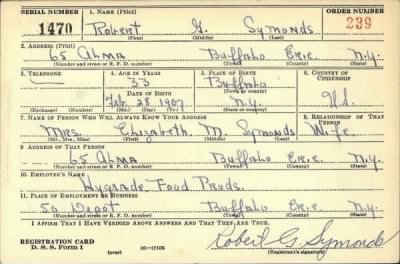 SERIAL NUMBER 1. NAME (Print) ORDER NUMBER
1470 Robert G. Symonds 239
(First) (Middle) (Last)
2. ADDRESS (Print)
65 Alma Buffalo Erie N.Y.
(Number and street or R. F. D. number) (Town) (County) (State)
3. TELEPHONE 4. AGE IN YEARS 5. PLACE OF BIRTH 6. COUNTRY OF CITIZENSHIP
— 33 Buffalo
DATE OF BIRTH (Town or county)
Feb. 28 1907 N.Y. U.S.
(Exchange) (Number) (Mo.) (Day) (Yr.) (State or country)
7. NAME OF PERSON WHO WILL ALWAYS KNOW YOUR ADDRESS 8. RELATIONSHIP OF THAT PERSON
Mrs. Elizabeth M. Symonds Wife
(Mr., Mrs., Miss) (First) (Middle) (Last)
9. ADDRESS OF THAT PERSON
65 Alma Buffalo Erie N.Y.
(Number and street or R. F. D. number) (Town) (County) (State)
10. EMPLOYER'S NAME
Hygrade Food Prods.
11. PLACE OF EMPLOYMENT OR BUSINESS
50 Depot Buffalo Erie N.Y.
(Number and street or R. F. D. number) (Town) (County) (State)
I AFFIRM THAT I HAVE VERIFIED ABOVE ANSWERS AND THAT THEY ARE TRUE.
REGISTRATION CARD
D. S. S. Form 1 (over) 16—17105 Robert G. Symonds
(Registrant's signature)